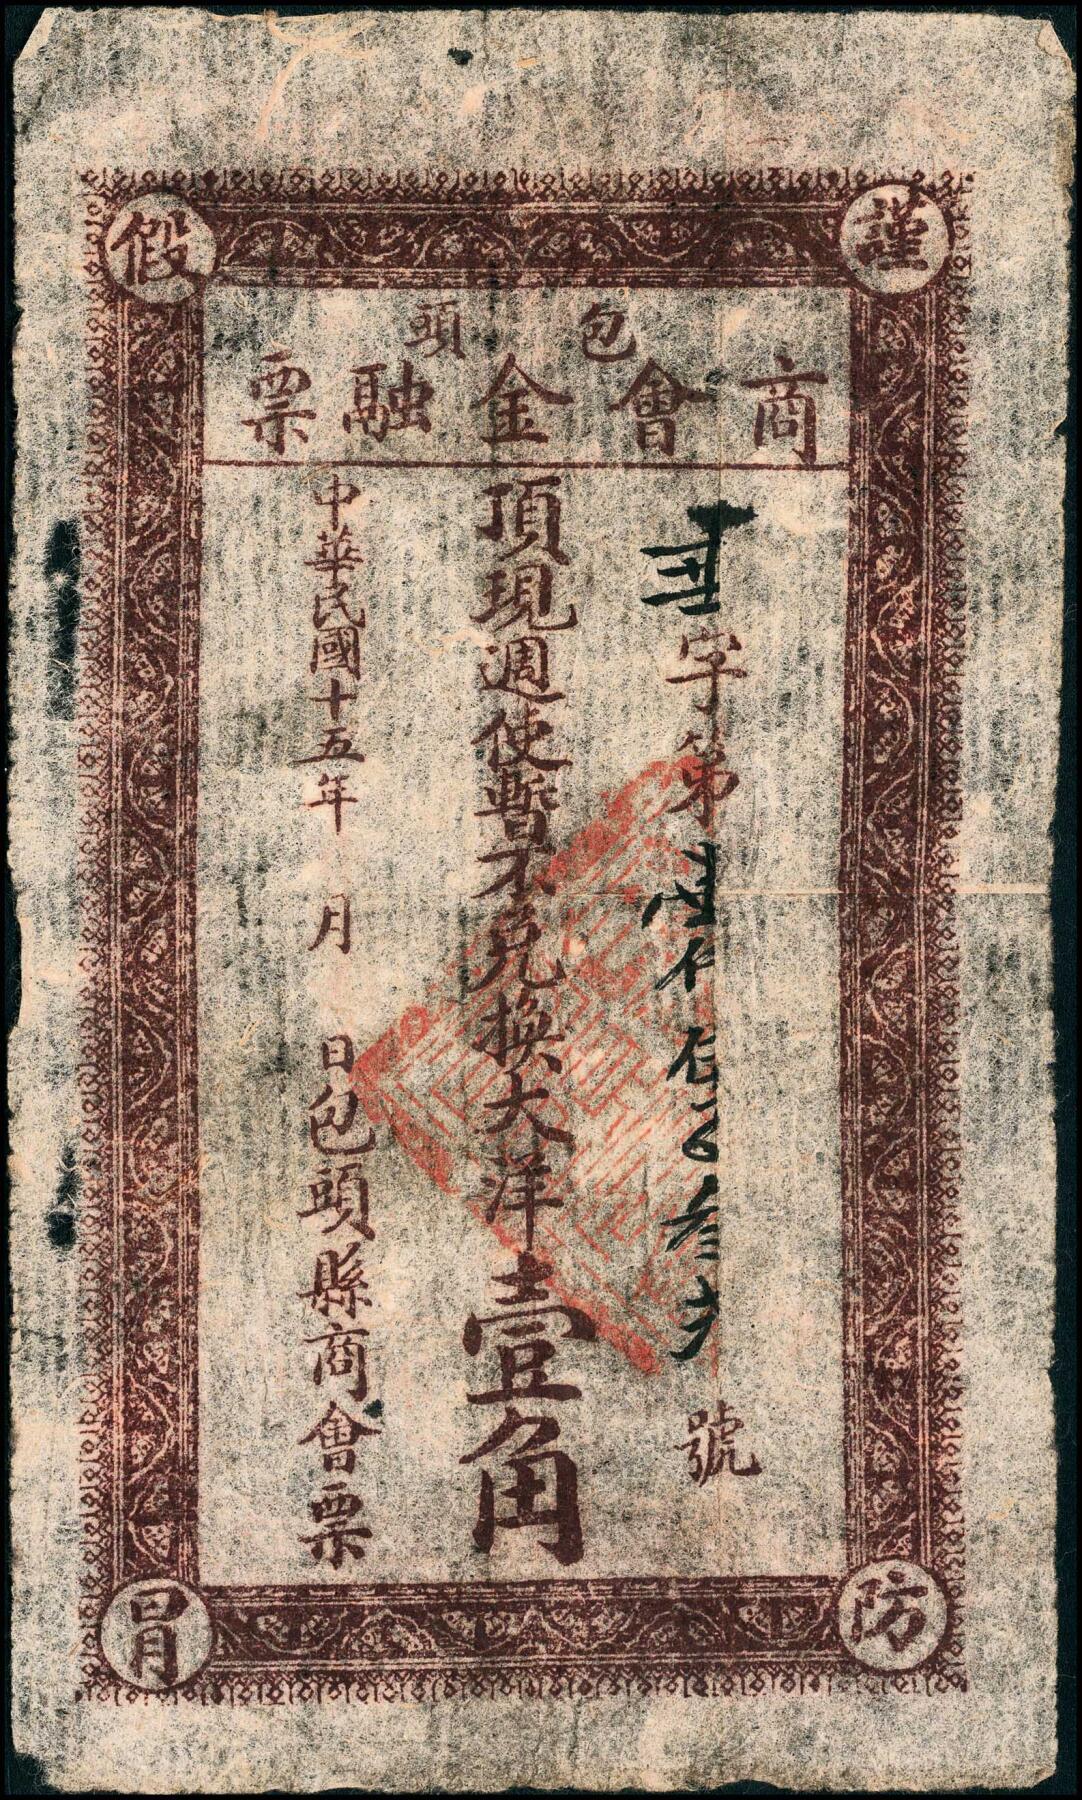 謹防假冒
包頭
商會金融票
字第 號
頂現週使暫不兌換大洋壹角
中華民國十五年 月 日包頭縣商會票